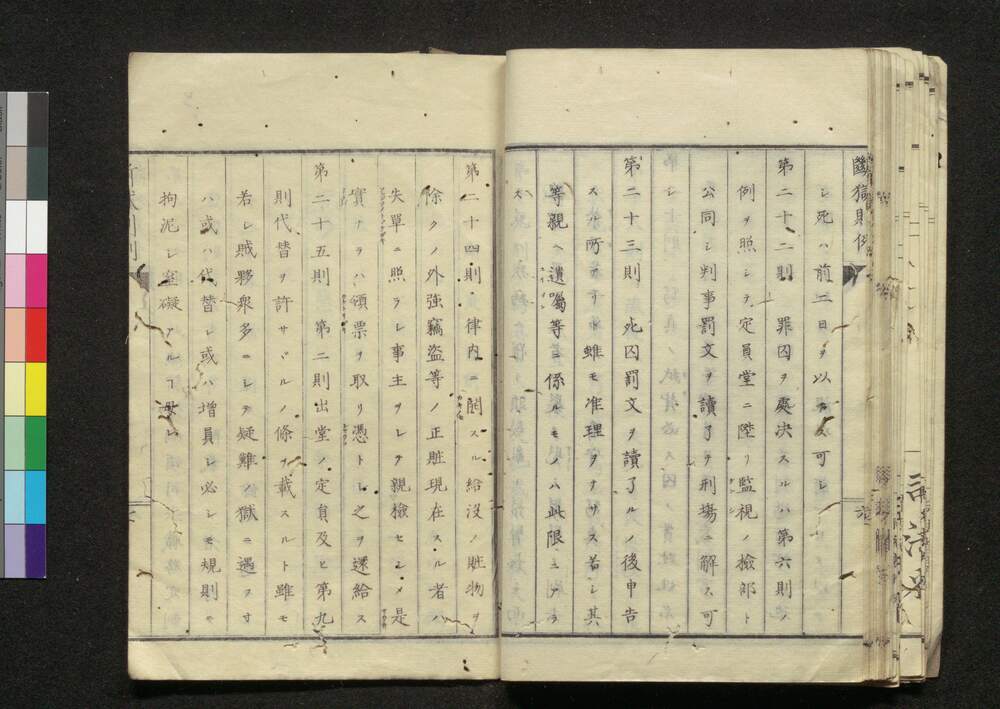 斷獄則例
シ死ハ前二日ヲ以テス可シ
第二十二則 罪囚ヲ處决スルハ第六則ノ
例ヲ照シテ定員堂ニ陞リ監視ノ撿部ト
公同シ判事罰文ヲ讀了シテ刑場ニ解ス可
シ
第二十三則 死囚罰文ヲ讀了スルノ後申告
スル所アリト雖モ准理ヲナサス若シ其
等親ヘ遺囑等ニ係ルモノハ此限ニアラ
ス
第二十四則 律内ニ關スル給没ノ贓物ヲ
除クノ外強竊盗等ノ正贓現在スル者ハ
失單ニ照ラシ事主ヲシテ親撿セシメ是
實ナラハ領票ヲ取リ憑トシ之ヲ還給ス
第二十五則 第二則出堂ノ定員及ヒ第九
則代替ヲ許サヾルノ條ヲ載スルト雖モ
若シ賊夥衆多ニシテ疑難ノ獄ニ遇フ寸
ハ或ハ代替シ或ハ増員シ必シモ規則ニ
拘泥シ窒礙アルヿ毋レ